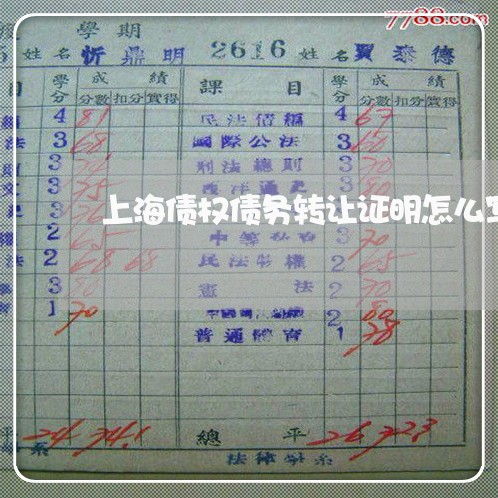 7788.com
學期
姓名 忻鼎明 2616 姓名 賈泰德
目 學分 成績 課目 學分 成績
分數 扣分 實得 分數 扣分 實得
4 81 民法債編 4 67
法 3 68 國際公法 3 60
則 3 刑法總則 3 70
文 3 75 西洋通史 3 80
上海债权债务转让证明怎么写
史 3 76
權 2 65 3 70
法 2 68 68 民法物權 2 65
3 80 憲法 2 70
育 1 70 2 80
普通體育 1 78
平 24 74.1 總平 26 72.3
系 法律學系